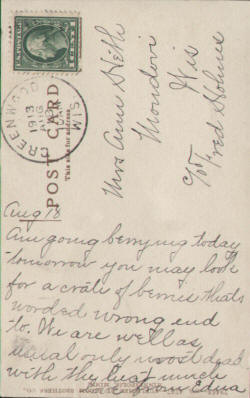 U.S. POSTAGE
1
GREENWOOD
AUG
1913
WIS
POST CARD
This side for address
Mrs Ann Heth
Mondovi
Wis
c/o Fred Holmes
Aug 18
Am going berrying today
tomorrow you may look
for a crate of berries thats
worded wrong end
to. We are well as
usual only most dead
with the heat much
from Edna